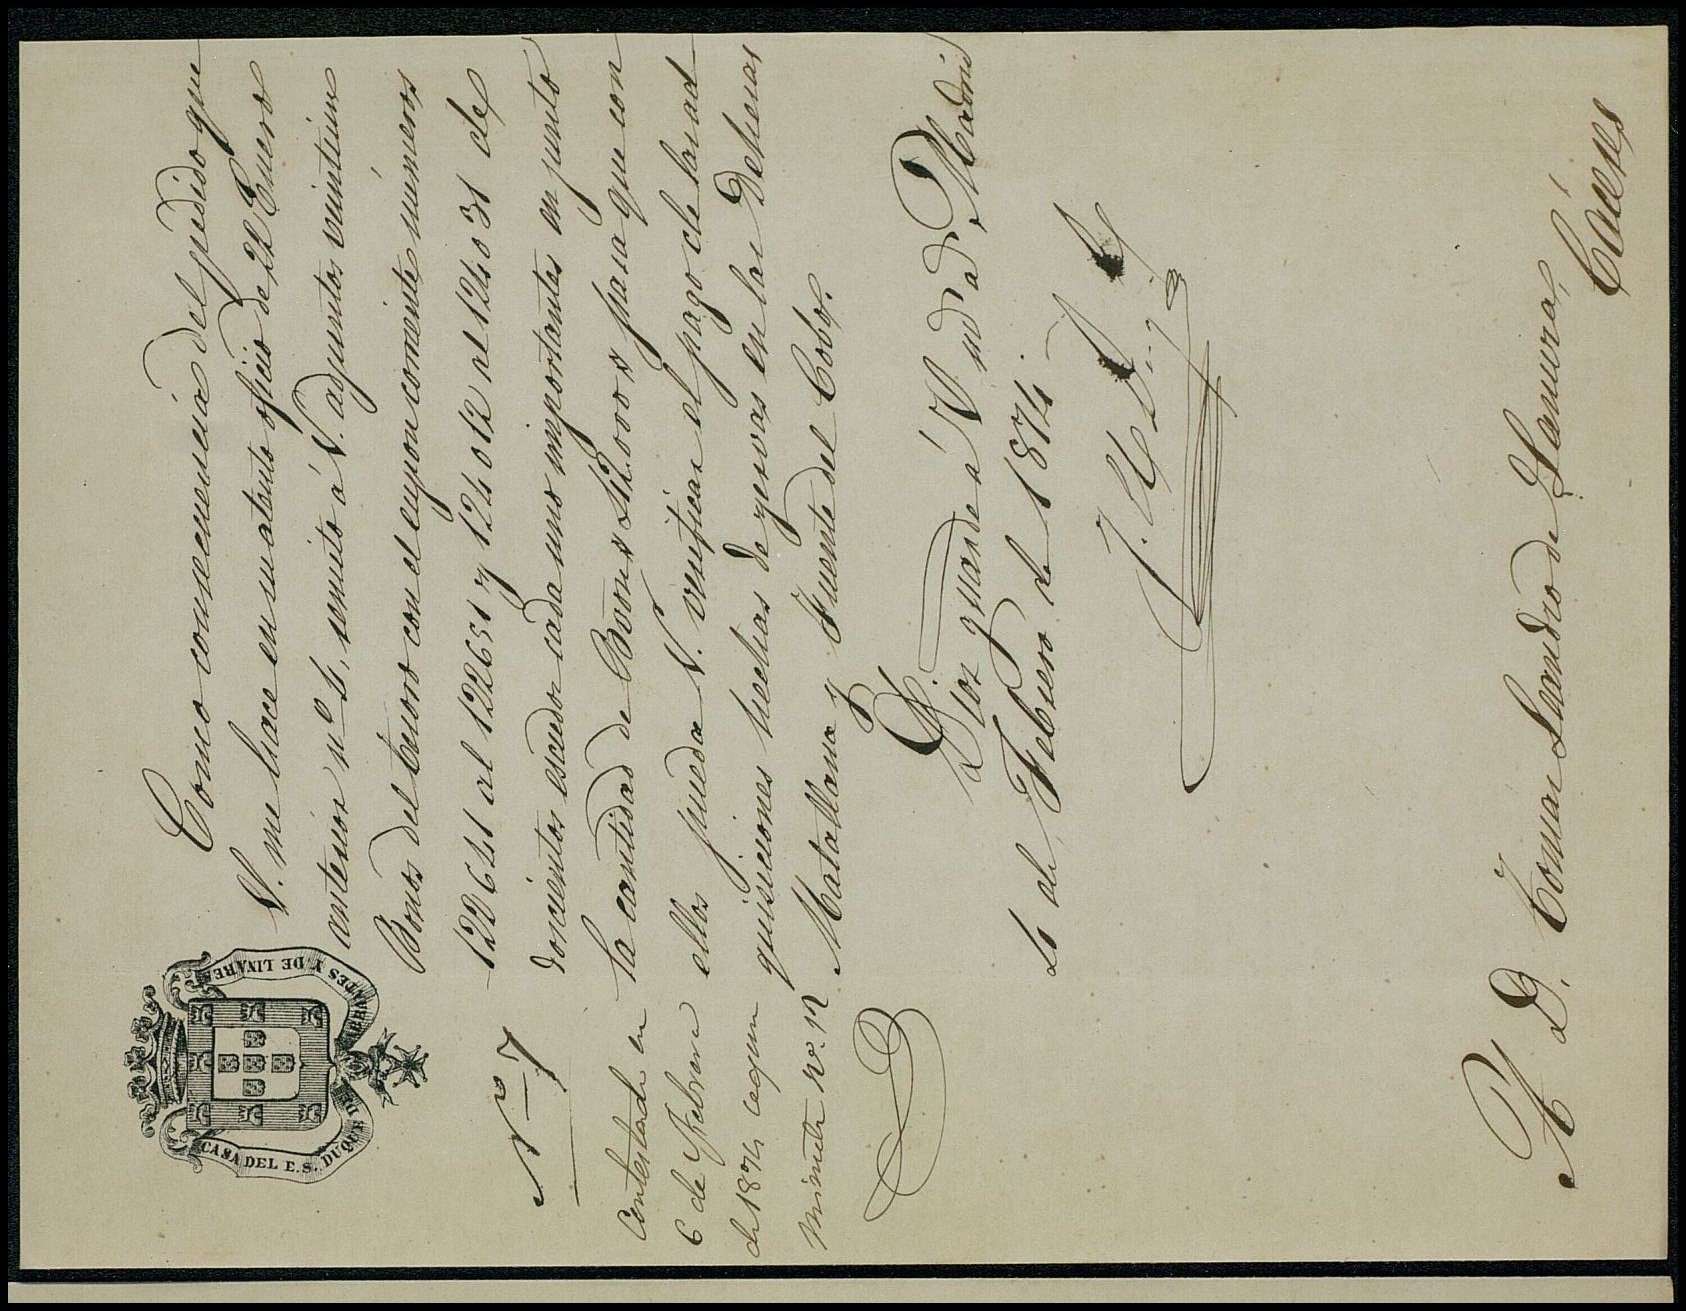 CASA DEL E.S. DUQUE DE ABRANTES Y DE LINARES
Nº 7
Contestada en
6 de Febrero
de 1874 segun
minuta nº 12
Como consecuencia del pedido que
V. me hace en su atento oficio de 22 Enero
anterior nº 4, remito á V. adjuntos veintiun
Bonos del tesoro con el cupon corriente números
122641 al 122651 y 124012 al 124031 de
doscientos escudos cada uno importantes en junto
la cantidad de Bonos 42.000 para que con
ellos pueda V. verificar el pago de las ad
quisiciones hechas de yervas en las Dehesas
Matallana y Fuente del Cobo.
Dios guarde á V. m.s a.s Madrid
4 de Febrero de 1874
A D. Tomas Leandro de Lamura,
Cáceres